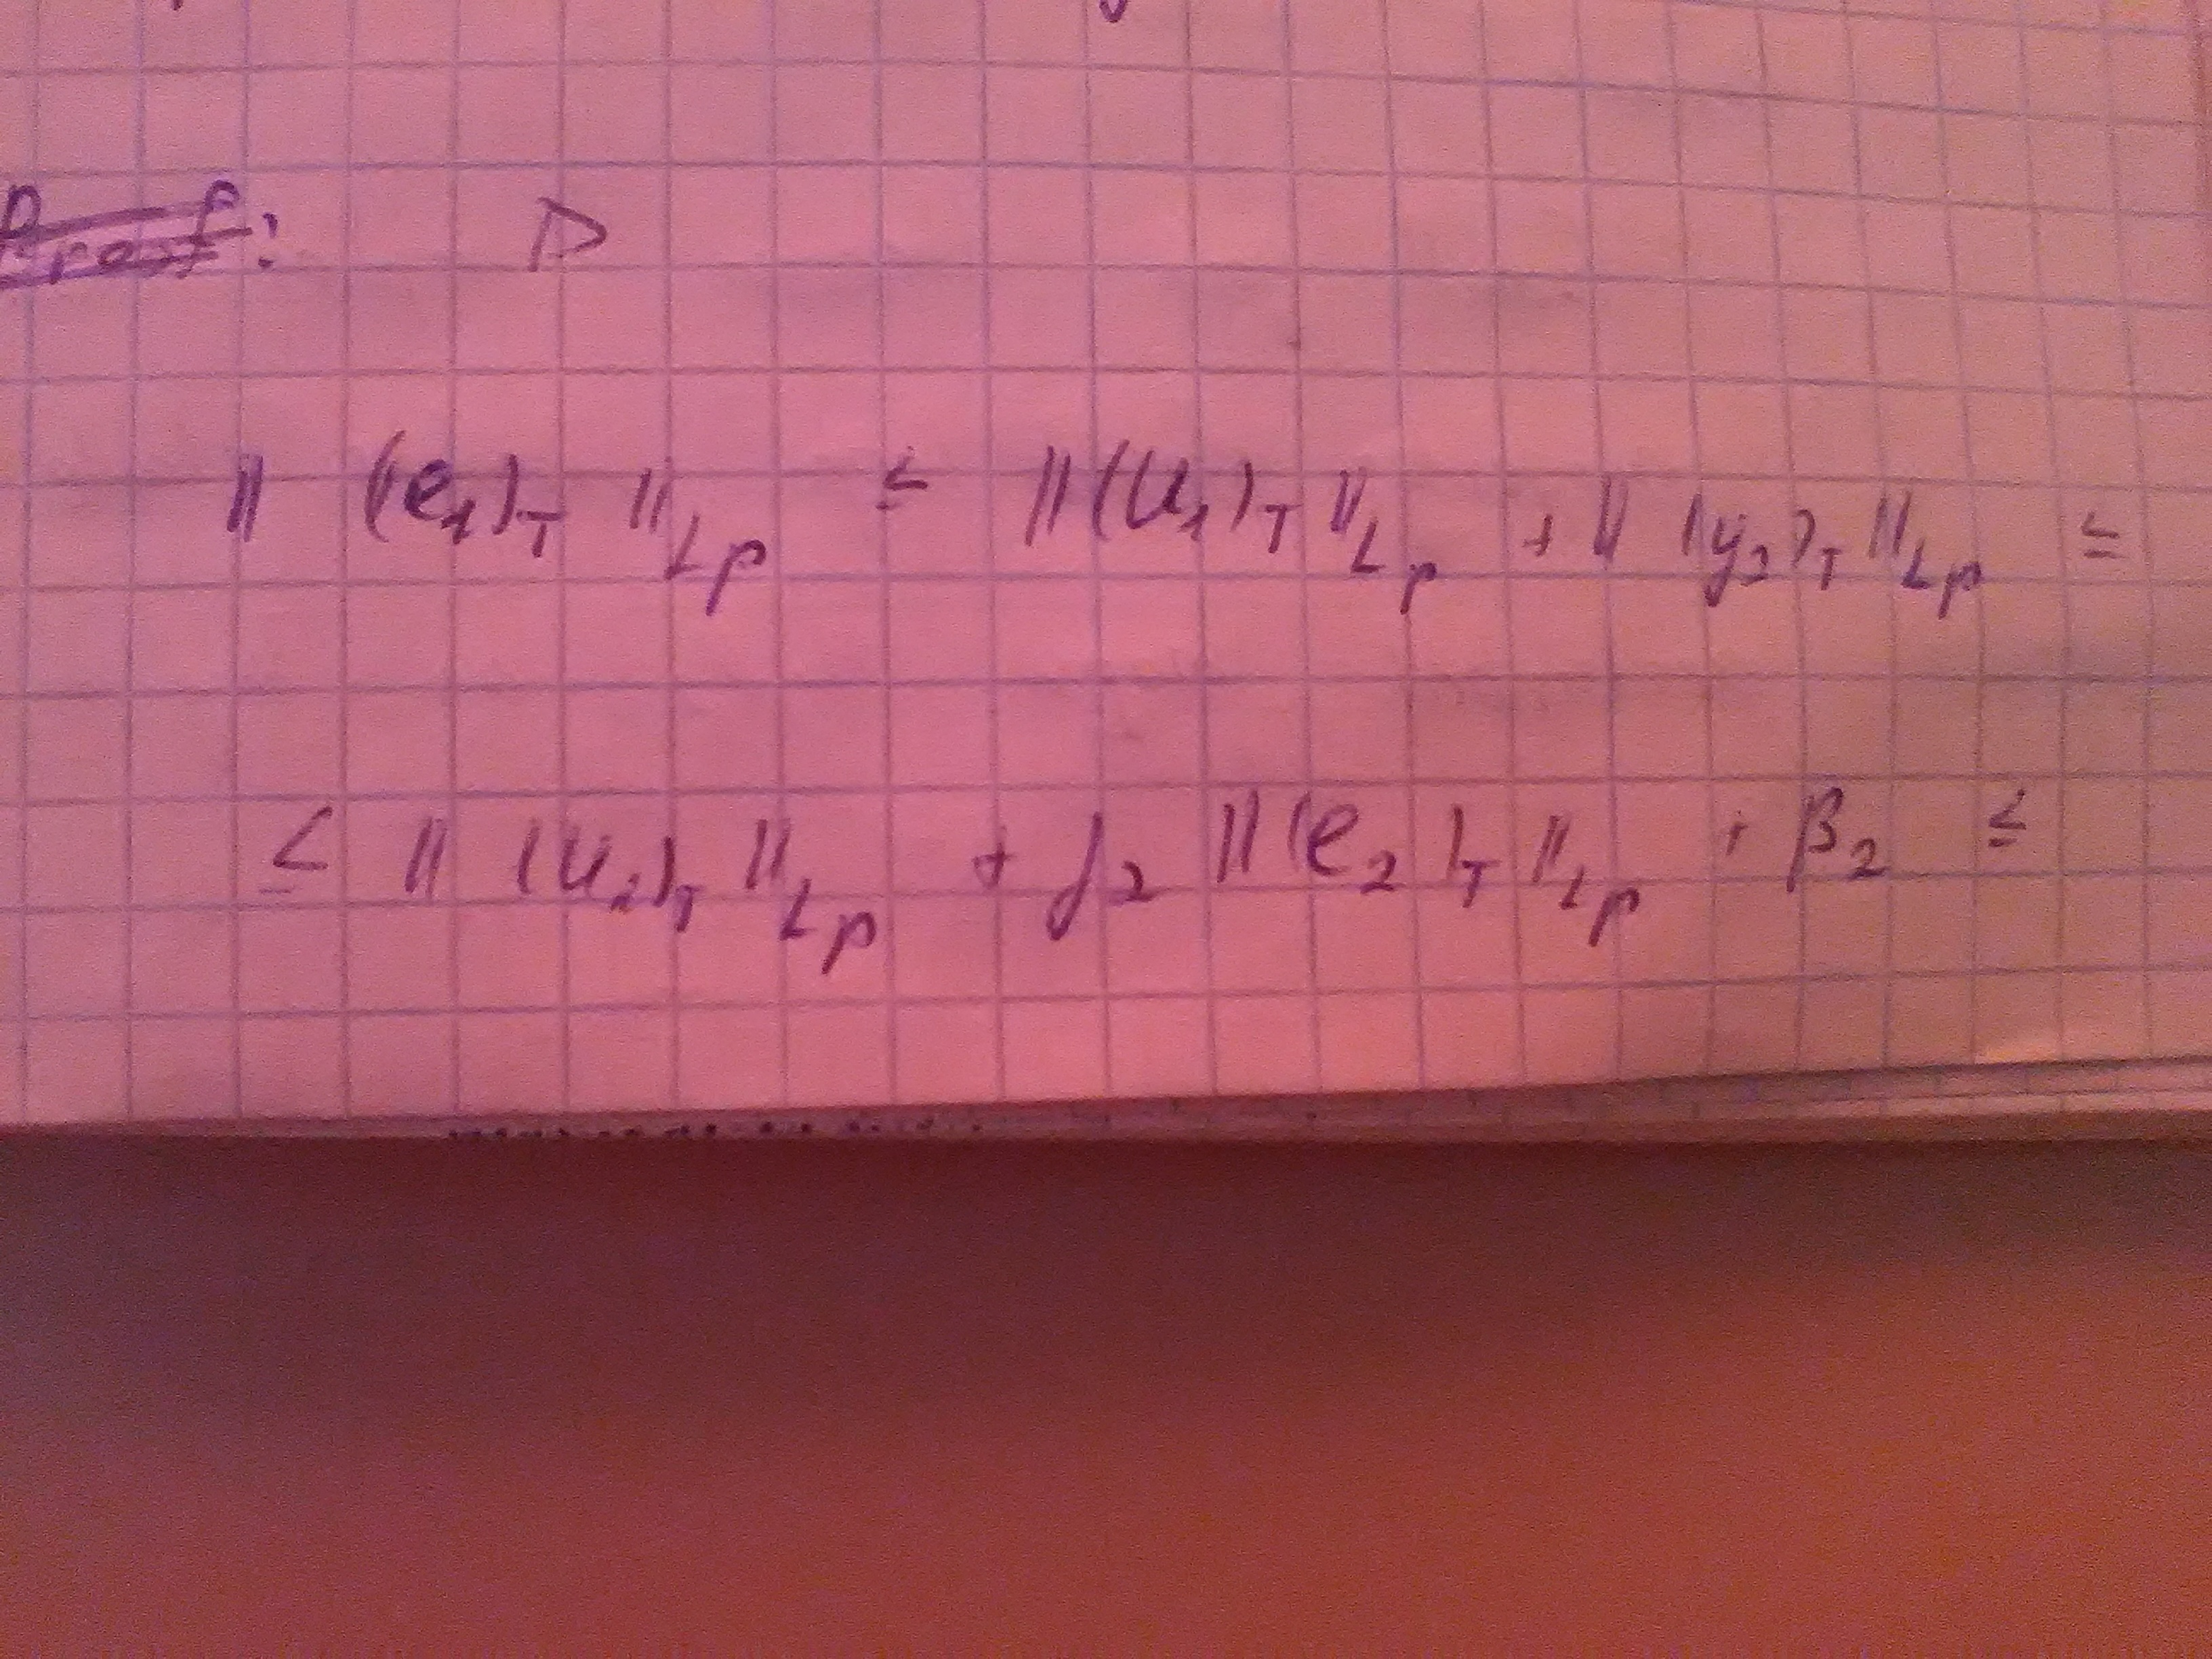 Proof: ▷
‖ (e₁)_T ‖_{L_p} ≤ ‖(u₁)_T‖_{L_p} + ‖ (y₂)_T ‖_{L_p} ≤
≤ ‖ (u₁)_T ‖_{L_p} + γ₂ ‖(e₂)_T ‖_{L_p} + β₂ ≤